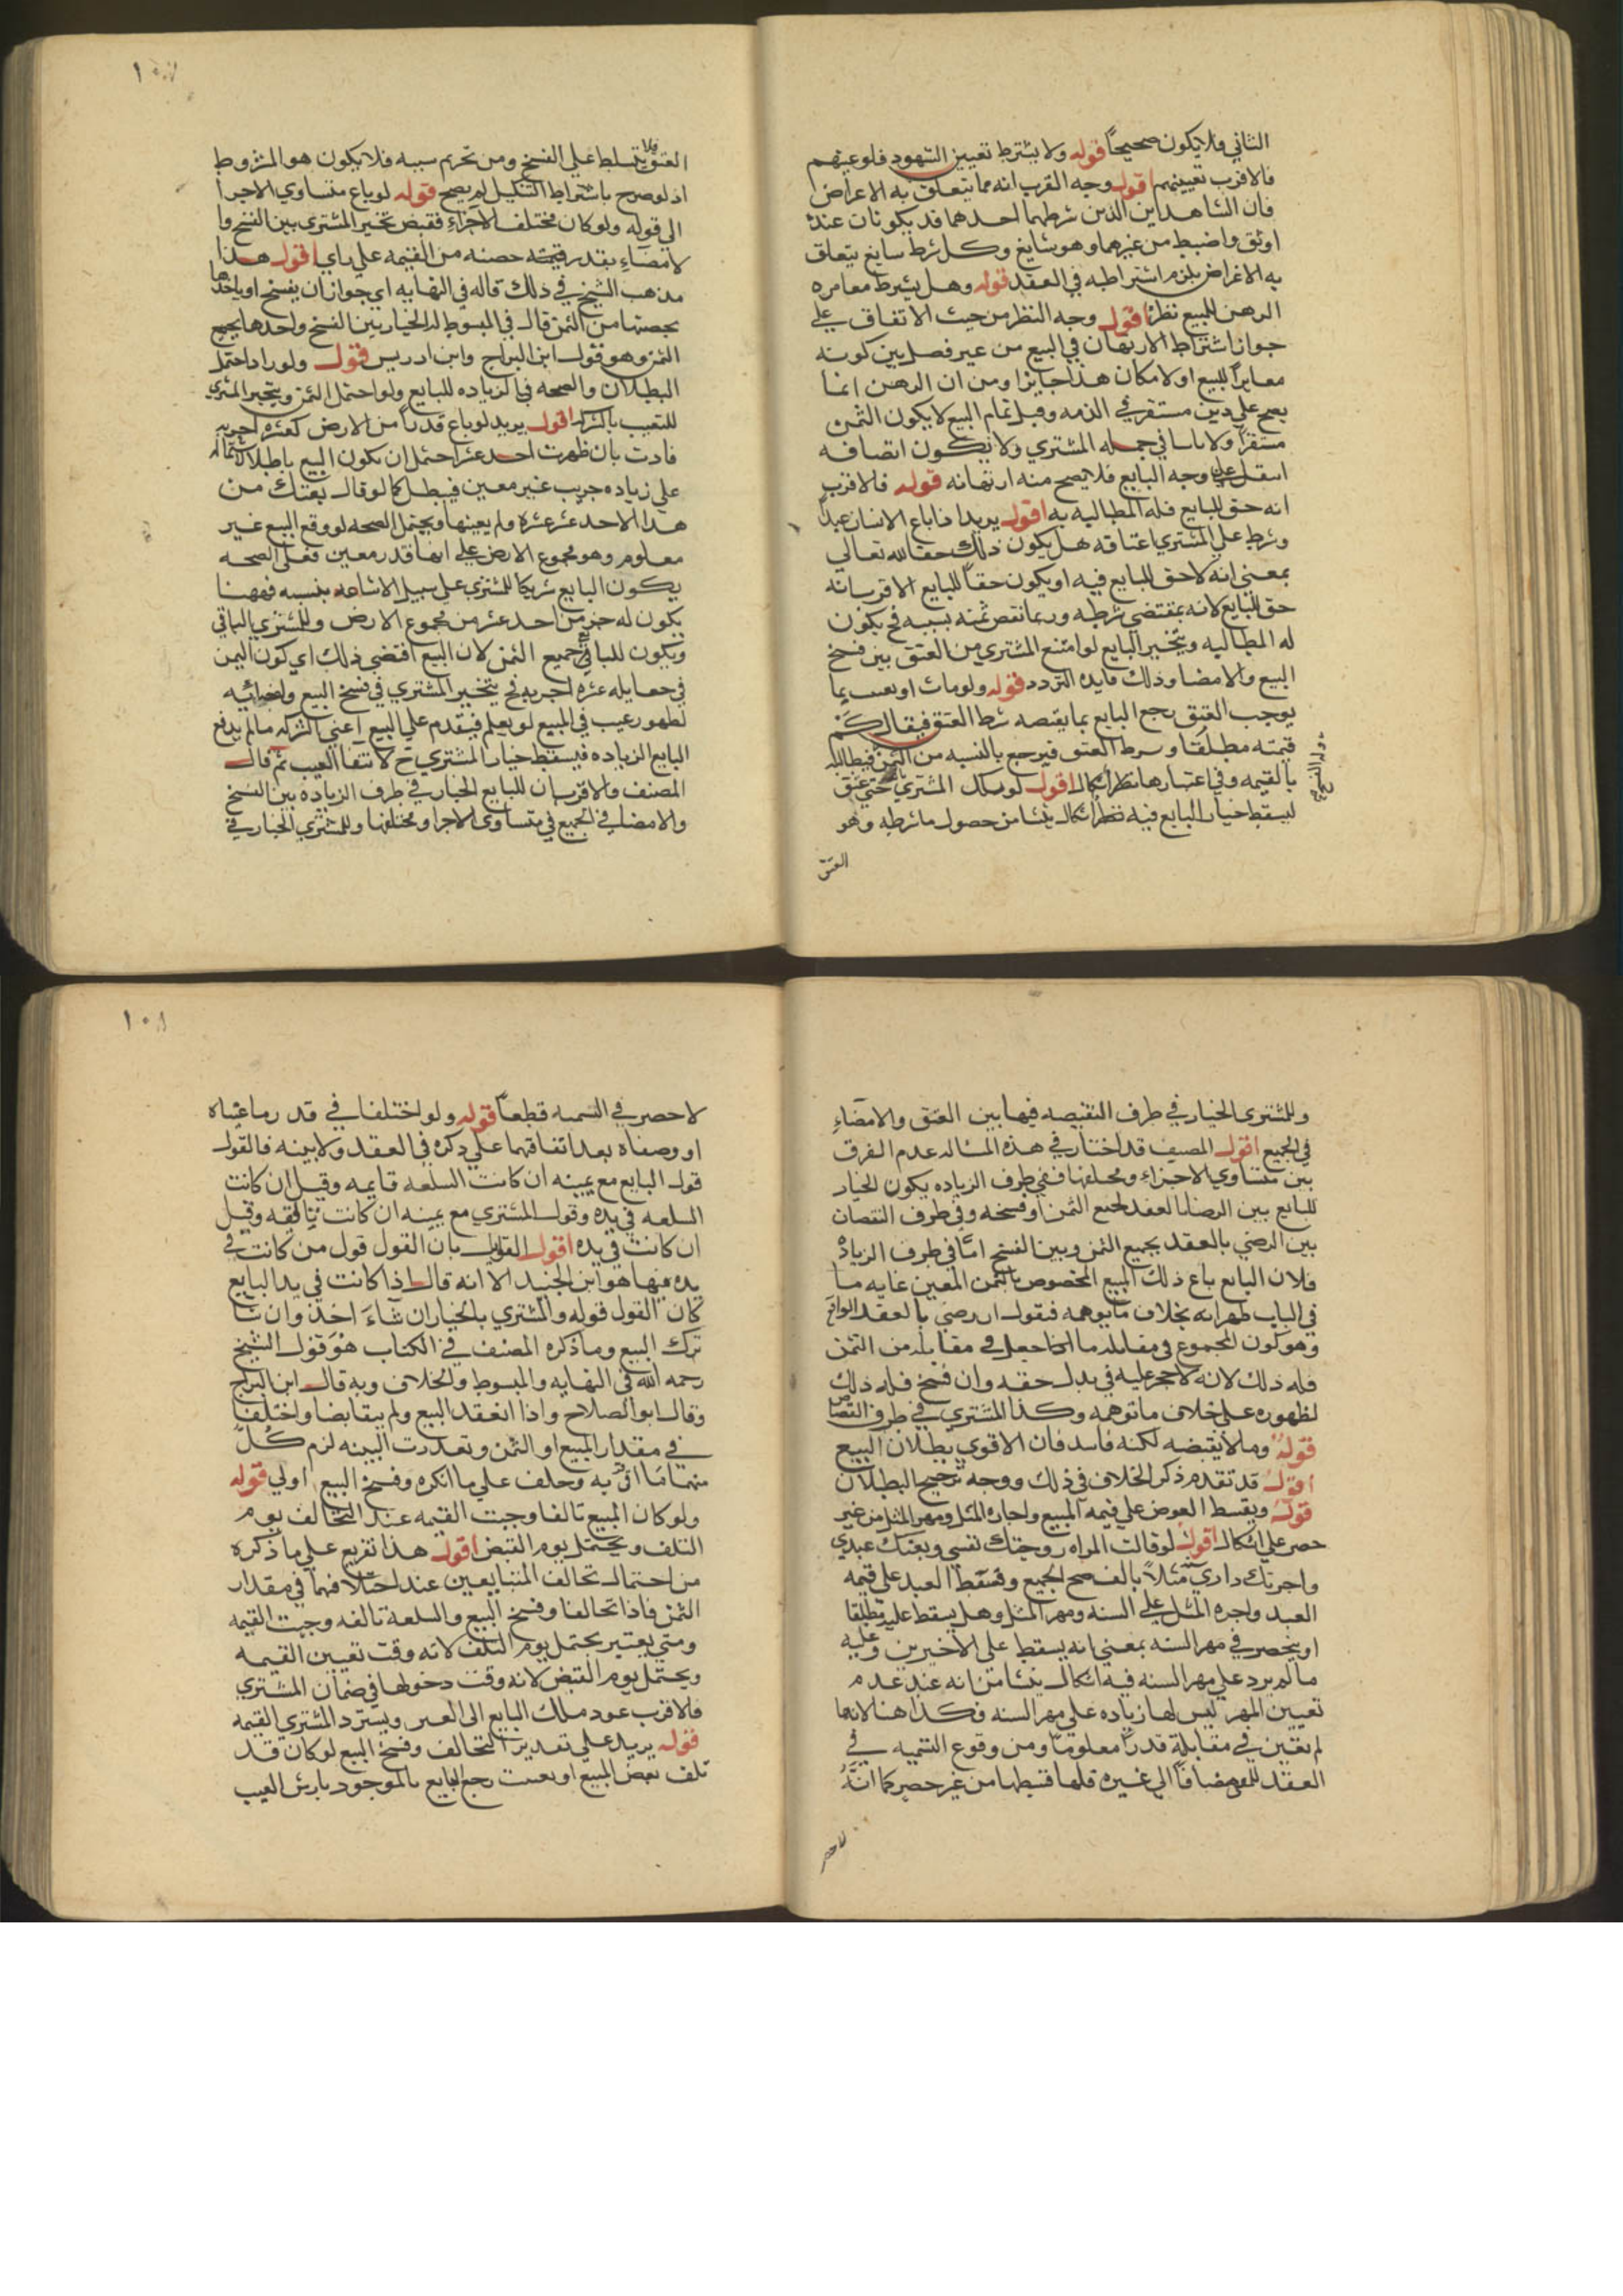 الثاني فلا يكون صحيحاً قوله ولا يشترط تعيين الشهود فلو عينهم
فالاقرب تعيينهم اقول وجه القرب انه مما يتعلق به الاعراض
فان الشاهدين الذين شرطهما احدهما قد يكونان عنده
اوثق واضبط من غيرهما وهو شايغ وكل شرط سايغ يتعلق
به الاغراض يلزم اشتراطه في العقد قوله وهل يشترط مغايره
الرهن للمبيع نظر اقول وجه النظر من حيث الاتفاق على
جواز اشتراط الارتهان في البيع من غير فصل بين كونه
مغايراً للبيع او لا مكان هذا جايزا ومن ان الرهن انما
يصح على دين مستقر في الذمه وقبل تمام البيع لا يكون الثمن
مستقراً ولا في المشتري ولا يكون اتصافه
وجه البايع فلا يصح منه ارتهانه قوله فالاقرب
انه حق للبايع فله المطالبه به اقول يريد اذا باع الانسان عبداً
وشرط على المشتري اعتاقه هل يكون ذلك حقا لله تعالى
بمعنى انه لا حق للبايع فيه او يكون حقاً للبايع الاقرب انه
حق للبايع لانه بمقتضى شرطه وربما نقص ثمنه بسببه فح يكون
له المطالبه ويتخير البايع لو امتنع المشتري من العتق بين فسخ
البيع والامضا وذلك فايده التردد قوله ولو مات او تعيب بما
يوجب العتق رجع البايع بما يقتصه شرط العتق فيقال كم
قيمته مطلقا وبشرط العتق فيرجع بالنسبه من الثمن فيطالبه
بالقيمه وفي اعتبارها نظر اشكال اقول لو نكل المشتري حتى عتق
ليسقط خيار البايع فيه نظر اشكال ينشا من حصول ما شرطه وهو
العتق
١٠٧
العتق فلا يتسلط على الفسخ ومن تحريم سببه فلا يكون هو المشروط
اذ لو صرح باشتراط التنكيل لم يصح قوله لو باع متساوي الاجزا
الى قوله ولو كان مختلف الاجزاء فقبض تخير المشتري بين الفسخ وا
لامضاء بقدر قيمته حصته من القيمه على راي اقول هذا
مذهب الشيخ في ذلك قاله في النهايه اي جواز ان يفسخ او ياخذها
بحصتها من الثمن قال في المبسوط له الخيار بين الفسخ واخذها بجميع
الثمن وهو قول ابن البراج وابن ادريس قوله ولو زاد احتمل
البطلان والصحه في الزياده للبايع ولو احتمل الثمن ويتخير المشتري
للتعيب بالشركه اقول يريد لو باع قدراً من الارض كعشره اجربه
فزادت بان ظهرت احد عشر احتمل ان يكون البيع باطلا لاشتماله
على زياده جريب غير معين فيبطل كما لو قال بعتك من
هذا الاحد عشر عشره ولم يعينها ويحتمل الصحه لو وقع البيع غير
معلوم وهو مجموع الارض على انها قدر معين فعلى الصحه
يكون البايع شريكا للمشتري على سبيل الاشاعه بنسبه فههنا
يكون له جزء من احد عشر من مجموع الارض وللمشتري الباقي
ويكون للبايع جميع الثمن لان البيع اقتضى ذلك اي كون الثمن
في مقابله عشره اجربه فح يتخير المشتري في فسخ البيع وامضائه
لظهور عيب في المبيع لو يعلم فيقدم على البيع اعني الشركه ما لم يدفع
البايع الزياده فيسقط خيار المشتري ح لانتفا العيب ثم قال
المصنف والاقرب ان للبايع الخيار في طرف الزياده بين الفسخ
والامضا في الجميع في متساوي الاجزا ومختلفها وللمشتري الخيار في
وللمشتري الخيار في طرف النقيصه فيها بين العتق والامضاء
في الجميع اقول المصنف قد اختار في هذه المساله عدم الفرق
بين متساوي الاجزاء ومختلفها ففي طرف الزياده يكون الخيار
للبايع بين الرضا بالعقد بجميع الثمن او فسخه وفي طرف النقصان
بين الرضي بالعقد بجميع الثمن وبين الفسخ امّا في طرف الزياده
فلان البايع باع ذلك المبيع المخصوص بالثمن المعين غايه ما
في الباب ظهر انه بخلاف ما توهمه فنقول ان رضي بالعقد الواقع
وهو كون المجموع في مقابله ما جعل في مقابله من الثمن
فله ذلك لانه لا حجر عليه في بدل حقه وان فسخ فله ذلك
لظهوره على خلاف ما توهمه وكذا المشتري في طرف النقصان
قوله وما لا يقبضه لكنه فاسد فان الاقوى بطلان البيع
اقول قد تقدم ذكر الخلاف في ذلك ووجه ترجيح البطلان
قوله ويقسط العوض على قيمه المبيع واجاره المثل ومهر المثل من غير
حصر على اشكال اقول لو قالت المراه زوجتك نفسي وبعتك عبدي
واجرتك داري مثلاً بالف صح الجميع وقسط العبد على قيمه
العبد واجره المثل على السنه ومهر المثل وهل يسقط عليه مطلقا
او ينحصر في مهر السنه بمعنى انه يسقط على الاخيرين وعليه
ما لم يرد على مهر السنه فيه اشكال ينشا من انه عند عدم
تعيين المهر ليس لها زياده على مهر السنه فكذا هنا لانها
لم تعين في مقابلة قدراً معلوماً ومن وقوع التسميه في
العقد للمهر مضافاً الى غيره فلها قسطها من غير حصر كما انّه
لا حصر
١٠٨
لا حصر في التسميه قطعاً قوله ولو اختلفا في قدر ما عيناه
او وصفاه بعد اتفاقهما على ذكره في العقد ولا بينه فالقول
قول البايع مع يمينه ان كانت السلعه قايمه وقيل ان كانت
السلعه في يده وقول المشتري مع يمينه ان كانت تالفه وقيل
ان كانت في يده اقول القول بان القول قول من كانت في
يده منهما هو ابن الجنيد الا انه قال اذا كانت في يد البايع
كان القول قوله والمشتري بالخيار ان شاء اخذ وان شا
ترك البيع وما ذكره المصنف في الكتاب هو قول الشيخ
رحمه الله في النهايه والمبسوط والخلاف وبه قال ابن البراج
وقال ابو الصلاح واذا انعقد البيع ولم يتقابضا واختلفا
في مقدار المبيع او الثمن وتعذرت البينه لزم كلّ
منهما ما اقرّ به وحلف على ما انكره وفسخ البيع اولى قوله
ولو كان المبيع تالفا وجبت القيمه عند التخالف يوم
التلف ويحتمل يوم القبض اقول هذا تفريع على ما ذكره
من احتمال تحالف المتبايعين عند اختلافهما في مقدار
الثمن فاذا تحالفا وفسخ البيع والسلعة تالفه وجبت القيمه
ومتى يعتبر يحتمل يوم التلف لانه وقت تعيين القيمه
ويحتمل يوم القبض لانه وقت دخولها في ضمان المشتري
فالاقرب عود ملك البايع الى العين ويسترد المشتري القيمه
قوله يريد على تقدير التحالف وفسخ البيع لو كان قد
تلف بعض المبيع او تعيب رجع البايع بالموجود بارش العيب